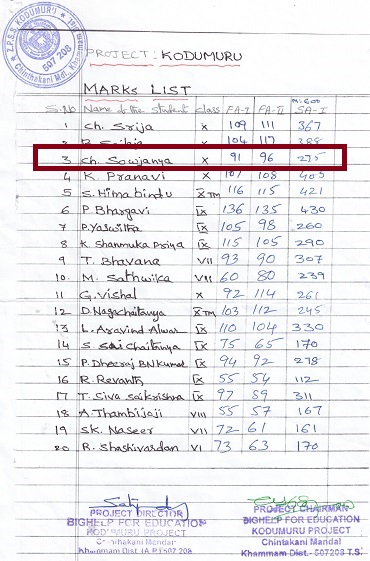 Z.P.S.S. KODUMURU
Chintakani Mdl.
507 208
PROJECT: KODUMURU
MARKS LIST
M:600
S.No Name of the student class FA-I FA-II SA-I
1 Ch. Srija X 109 111 367
2 X 104 117 388
3 Ch. Sowjanya X 91 96 275
4 K. Pranavi X 107 108 405
5 S. Himabindu X TM 116 115 421
6 P. Bhargavi IX 136 135 430
7 P. Yaswitka IX 105 98 260
8 K. Shanmuka Priya IX 115 105 290
9 T. Bhavana VII 93 90 307
10. M. Sathwika VII 60 80 239
11 G. Vishal X 92 114 261
12 D. Nagachaitanya X TM 103 112 245
13 L. Aravind Alwar IX 110 104 330
14 S. Sai Chaitanya IX 75 65 170
15 P. Dheeraj BN Kumar IX 94 92 278
16 R. Revanth IX 55 54 112
17 T. Siva Saikrishna IX 97 89 311
18 A. Thambiiaji VIII 55 57 167
19 SK. Naseer VII 72 61 161
20 R. Shashivardan VI 73 63 170
PROJECT DIRECTOR
BIGHELP FOR EDUCATION
KODUMURU PROJECT
Chintakani Mandal
Khammam Dist. (A.P) 507 208
PROJECT CHAIRMAN
BIGHELP FOR EDUCATION
KODUMURU PROJECT
Chintakani Mandal
Khammam Dist.- 507208 T.S.